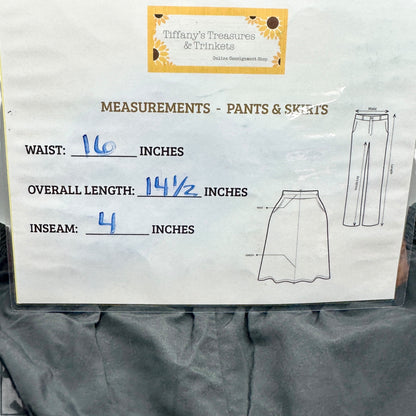 Tiffany's Treasures
& Trinkets
Online Consignment Shop
MEASUREMENTS - PANTS & SKIRTS
WAIST: 16 INCHES
OVERALL LENGTH: 14 1/2 INCHES
INSEAM: 4 INCHES